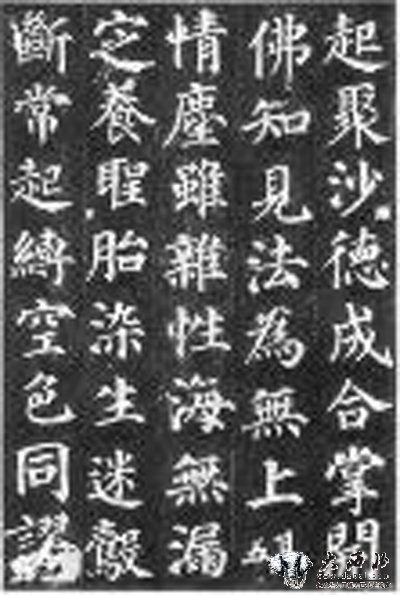 起聚沙德成合掌開
佛知見法為無上
情塵雖雜性海無漏
定養聖胎染生迷鷇
斷常起縛空色同謬